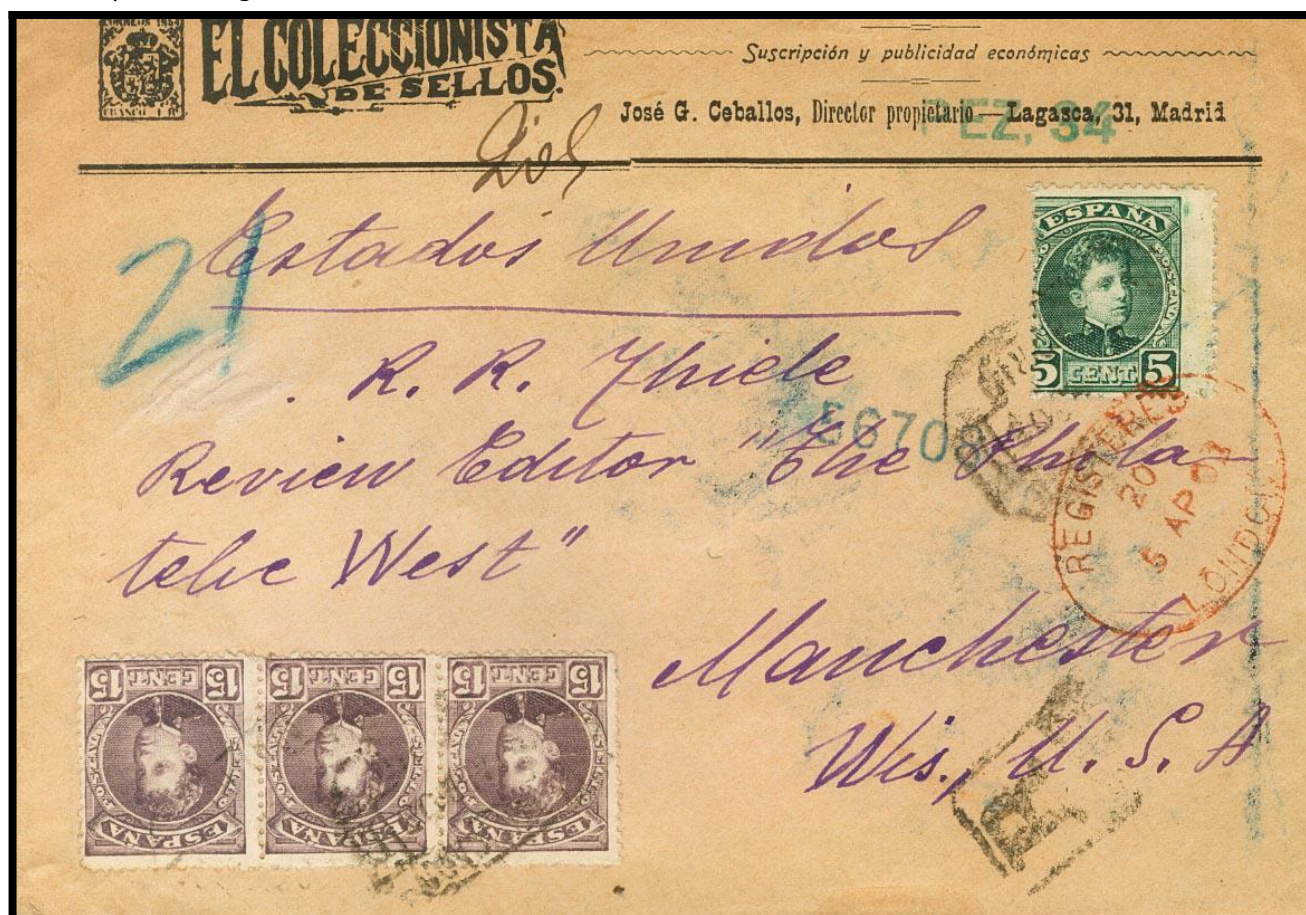 EL COLECCIONISTA
DE SELLOS.
FRANCO
Suscripción y publicidad económicas
José G. Ceballos, Director propietario—Lagasca, 31, Madrid
PEZ, 34
21
Estados Unidos
ESPAÑA
5 CENT 5
R. R. Thiele
56708
Review Editor "The Phila-
telic West"
REGISTERED
20
5 AP 03
LONDON
Manchester
Wis., U. S. A
R
15 CENT 15
ESPAÑA
15 CENT 15
ESPAÑA
15 CENT 15
ESPAÑA